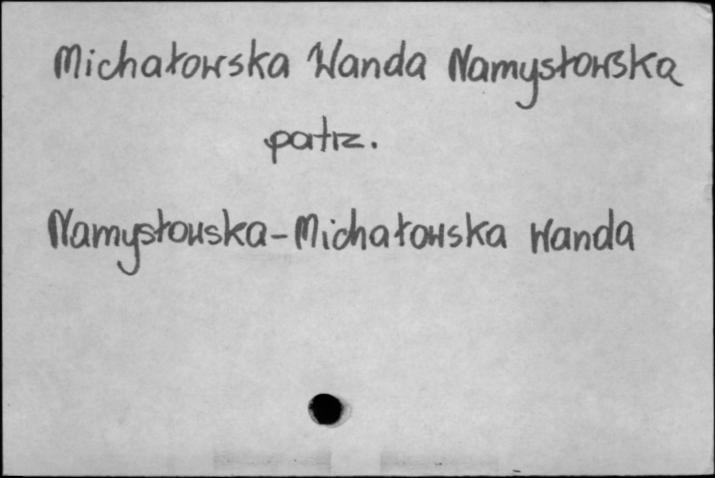 Michałowska Wanda Namysłowska
patrz.
Namysłowska-Michałowska Wanda